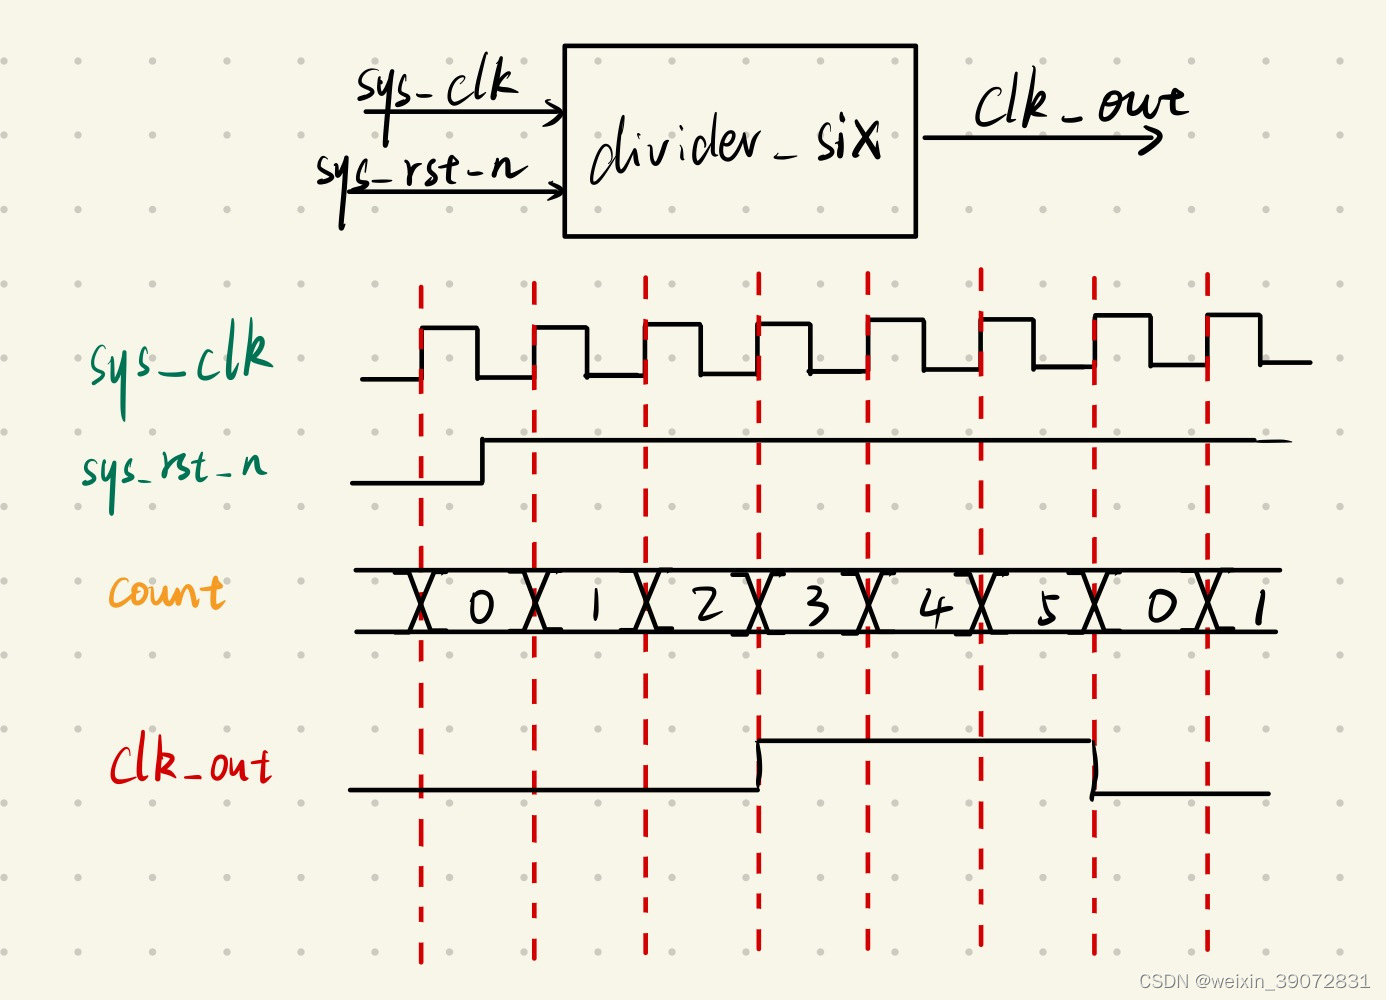 sys_clk
clk_out
divider_six
sys_rst_n
sys_clk
sys_rst_n
count
0 1 2 3 4 5 0 1
clk_out
CSDN @weixin_39072831